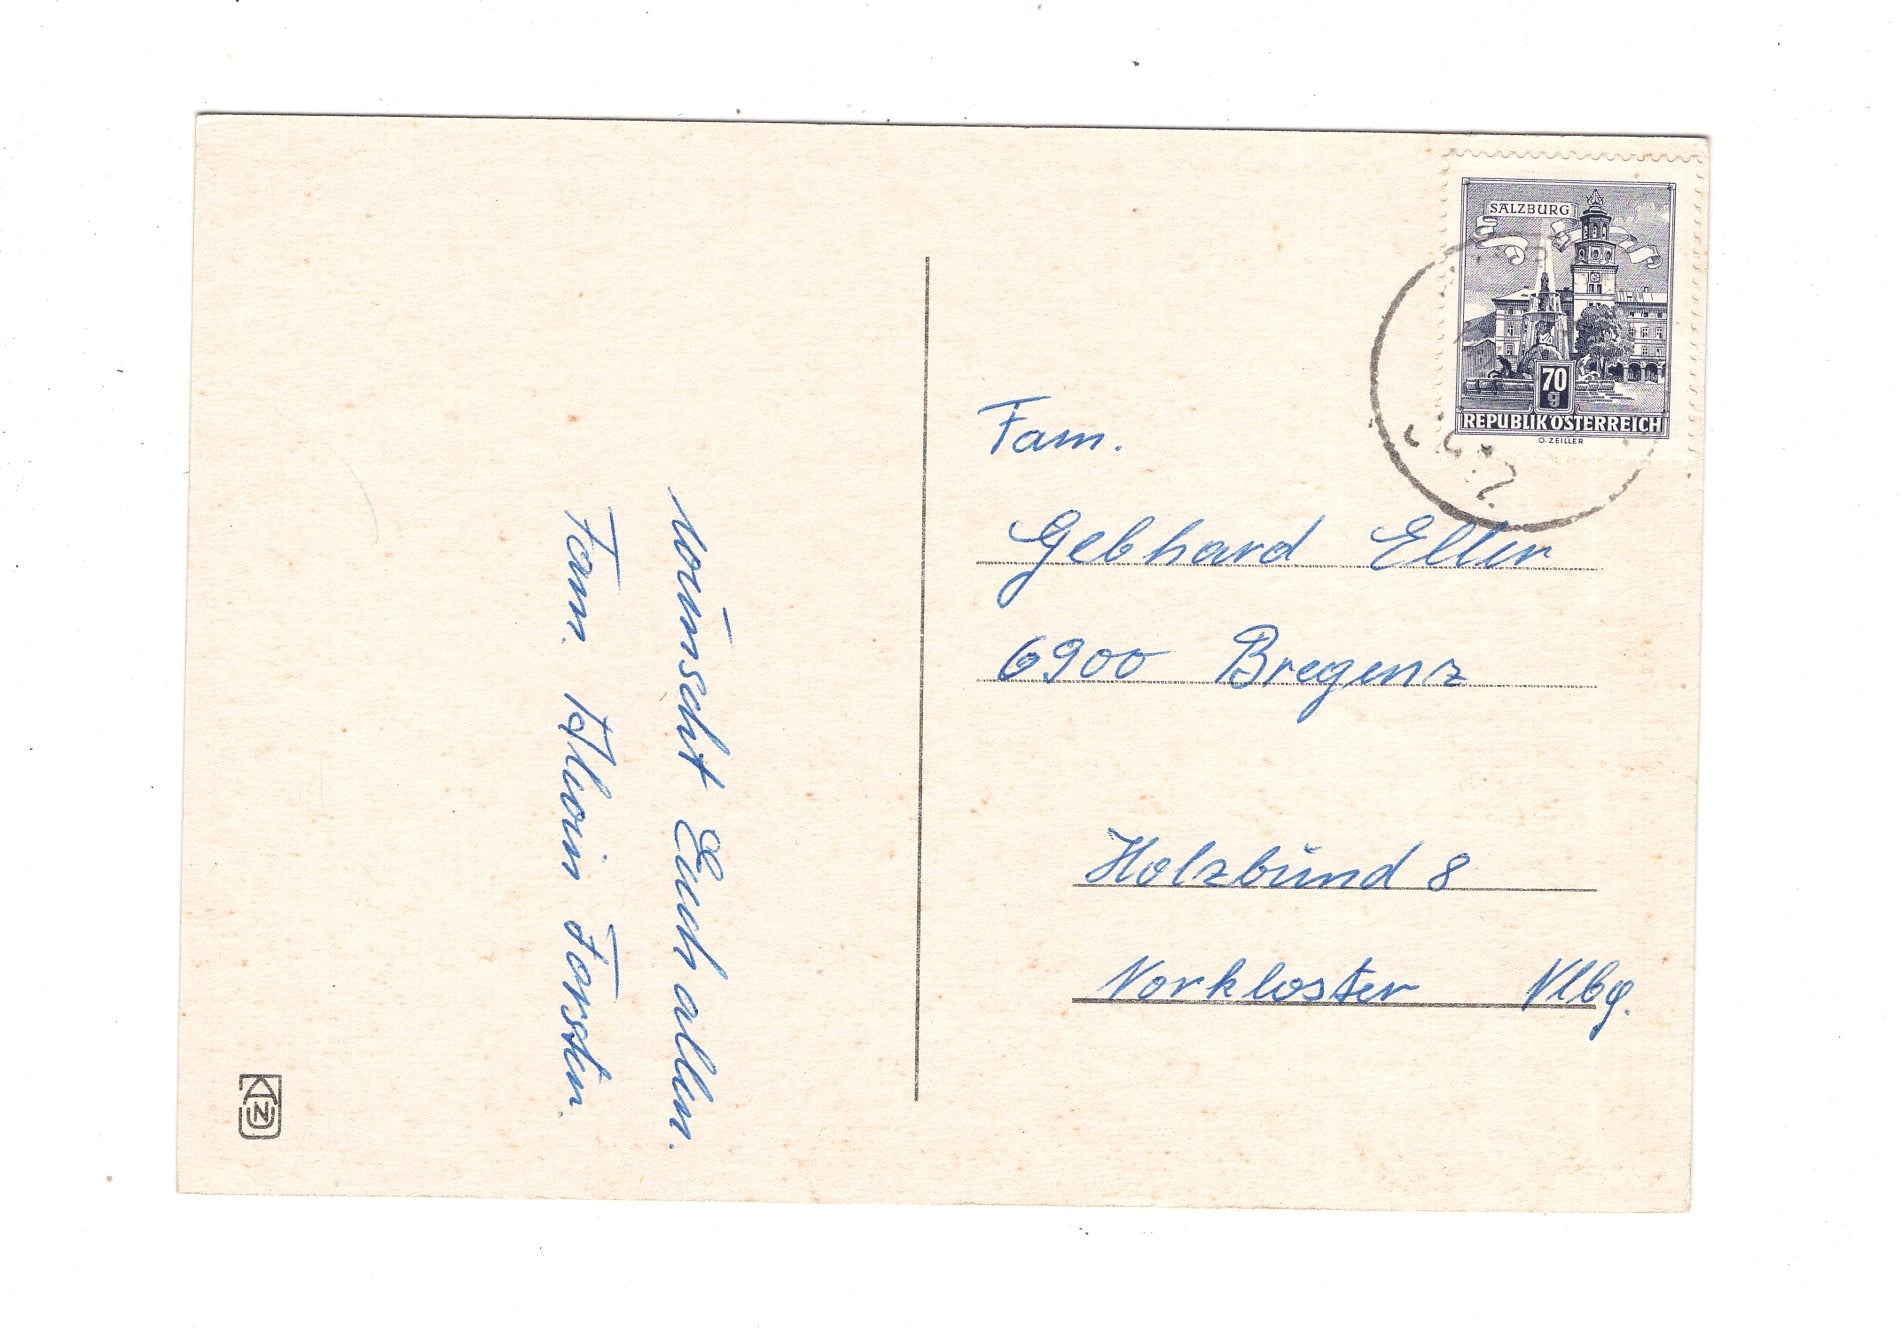 wünscht Euch allen
Fam. Alwin Forster.
SALZBURG
70
g
REPUBLIK ÖSTERREICH
O. ZEILLER
Fam.
Gebhard Eller
6900 Bregenz
Holzbünd 8
Vorkloster Vlbg.